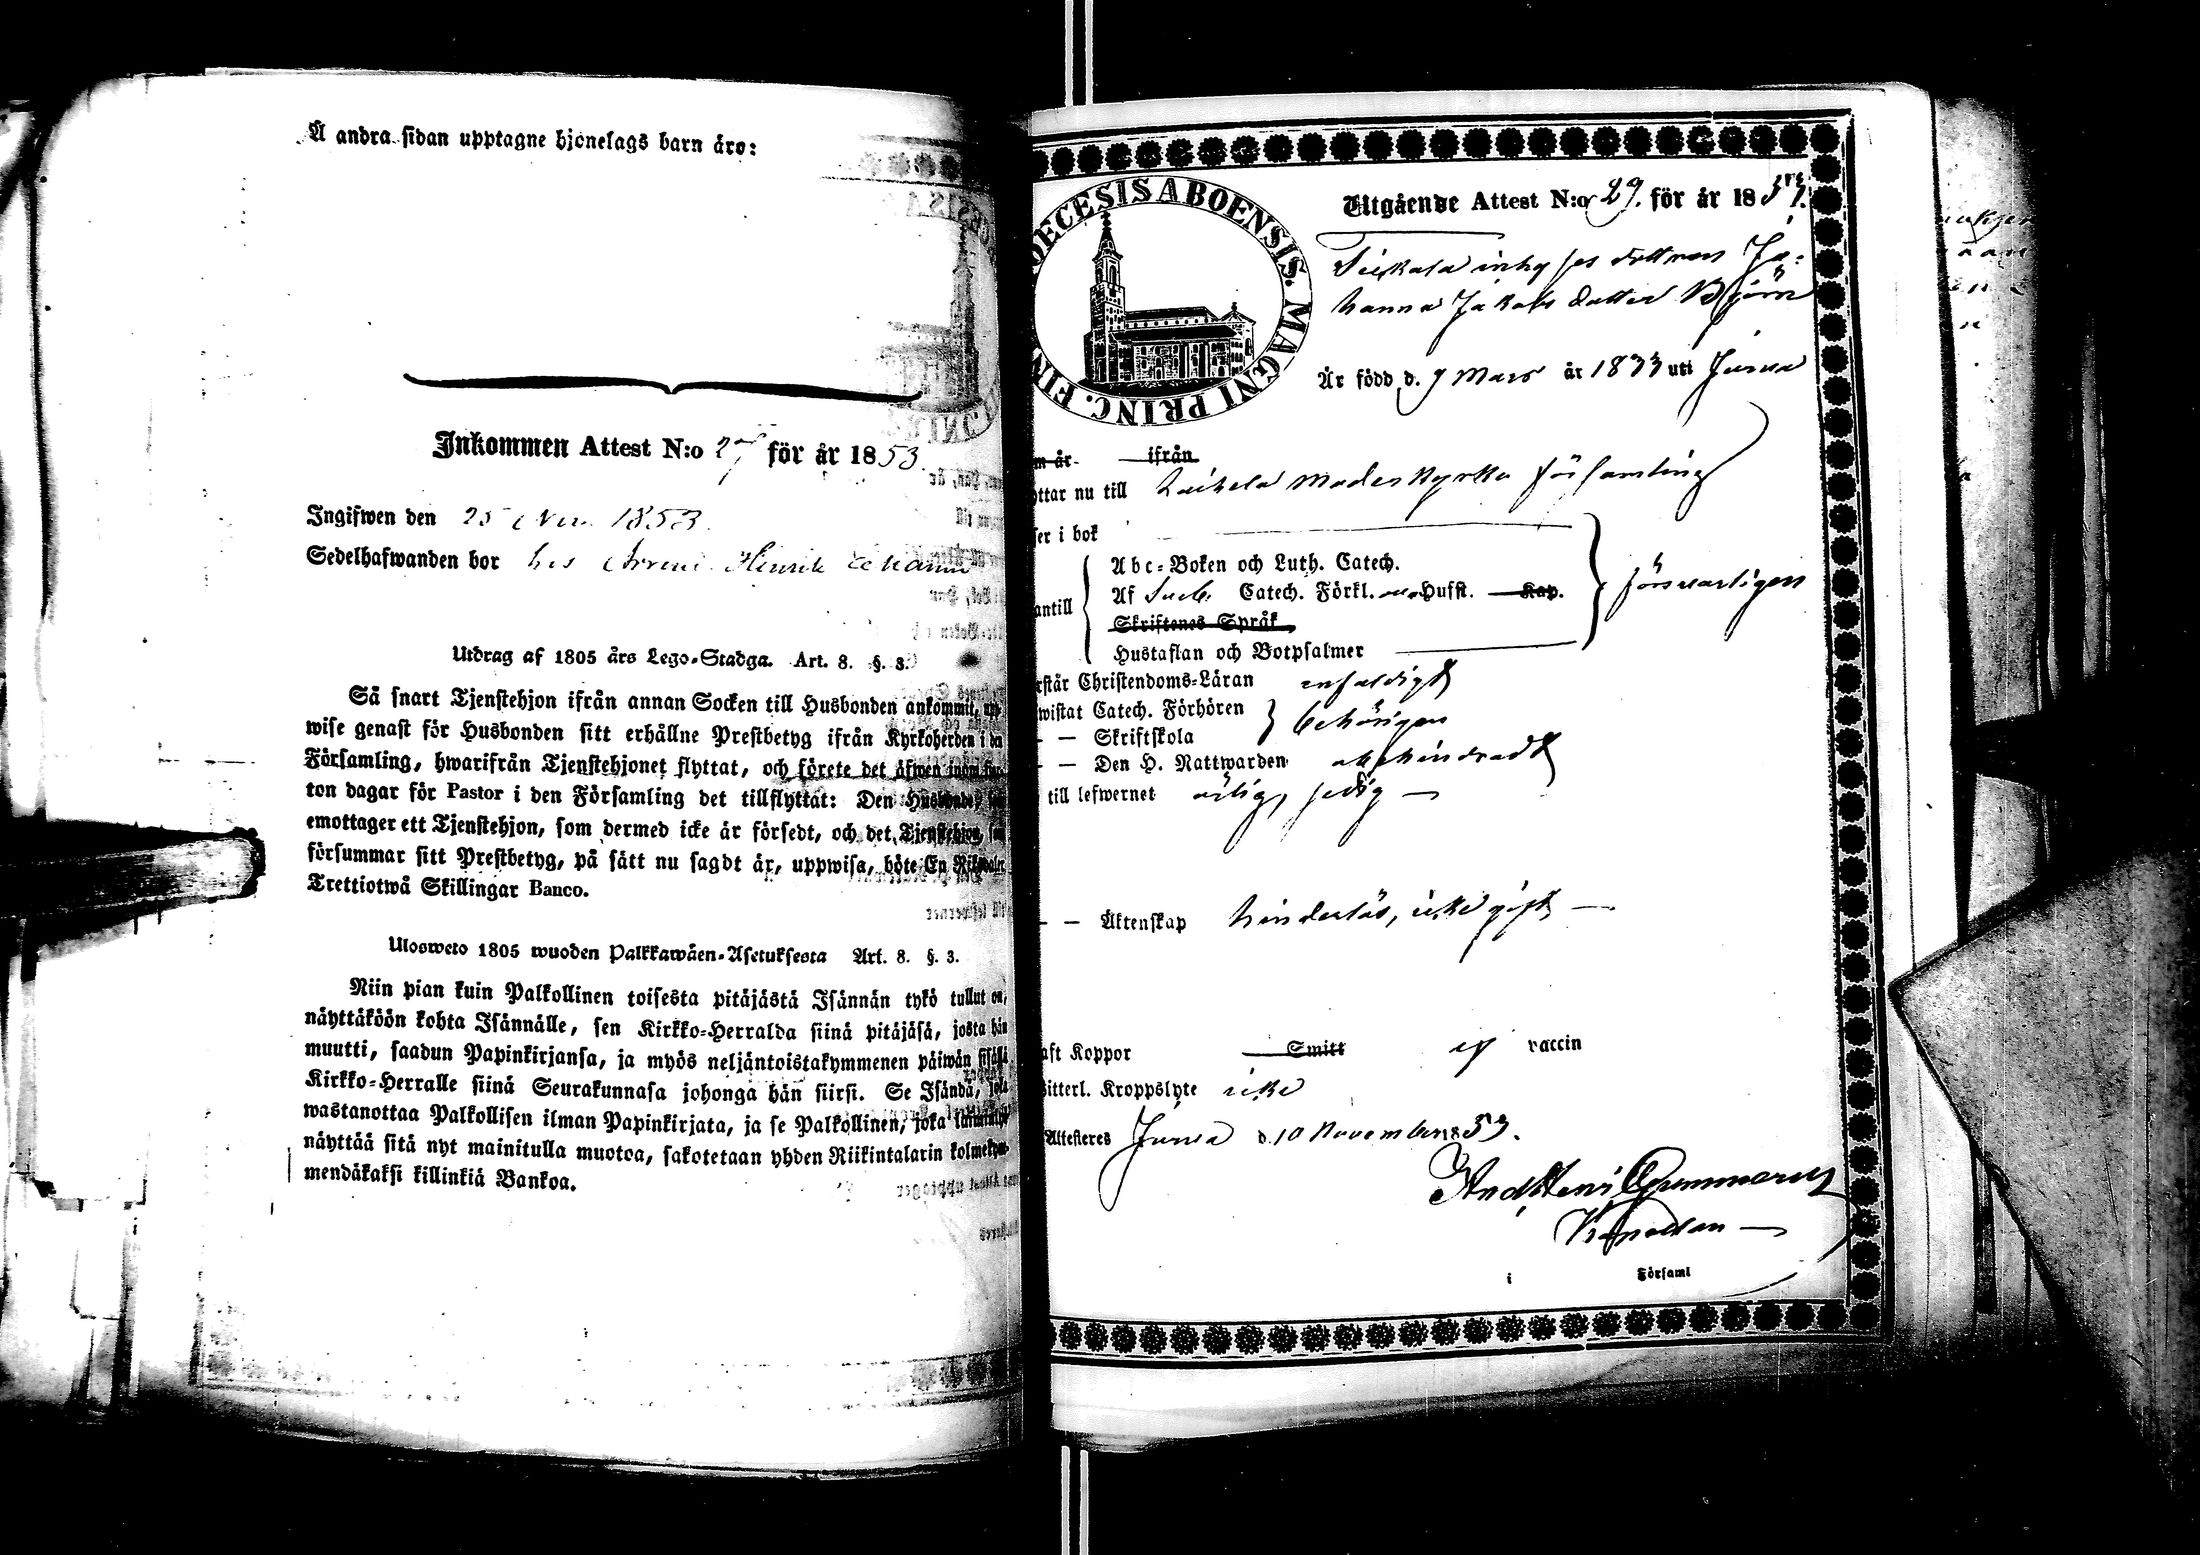 Å andra sidan upptagne hjonelags barn äro:
Inkommen Attest N:o 27 för år 1853.
Ingifwen den 25 Nov. 1853.
Sedelhafwanden bor hos Henrik
Utdrag af 1805 års Lego-Stadga. Art. 8. §. 3.
Så snart Tjenstehjon ifrån annan Socken till Husbonden ankommit, upp-
wise genast för Husbonden sitt erhållne Prestbetyg ifrån Kyrkoherden i den
Församling, hwarifrån Tjenstehjonet flyttat, och förete det äfwen inom fjor-
ton dagar för Pastor i den Församling det tillflyttat: Den Husbonde, som
emottager ett Tjenstehjon, som dermed icke är försedt, och det Tjenstehjon, som
försummar sitt Prestbetyg, på sätt nu sagdt är, uppwisa, böte En Riksdaler
Trettiotwå Skillingar Banco.
Ulosweto 1805 wuoden Palkkawäen-Asetuksesta Art. 8. §. 3.
Niin pian kuin Palkollinen toisesta pitäjästä Isännän tykö tullut on,
näyttäköön kohta Isännälle, sen Kirkko-Herralda siinä pitäjäsä, josta hän
muutti, saadun Papinkirjansa, ja myös neljäntoistakymmenen päiwän sisällä
Kirkko-Herralle siinä Seurakunnasa johonga hän siirsi. Se Isändä, joka
wastanottaa Palkollisen ilman Papinkirjata, ja se Palkollinen, joka laiminlyö
näyttää sitä nyt mainitulla muotoa, sakotetaan yhden Riikintalarin kolmekym-
mendäkaksi killinkiä Bankoa.
DIOECESIS ABOENSIS. MAGNI PRINC. FIN
Utgående Attest N:o 29. för år 1853.
inhyses dottren Jo-
hanna Jakobs dotter Björn
Är född d. 9 Mars år 1833 uti Jurva
m år ifrån
ttar nu till Laihela moderkyrko församling
ser i bok
Abc-Boken och Luth. Catech.
Af Sveb. Catech. Förkl. Hufst. Kap.
antill försvarligen
Skriftenes Språk
Hustaflan och Botpsalmer
rstår Christendoms-Läran enfaldigt
wistat Catech. Förhören behörigen
— — Skriftskola
— — Den H. Nattwarden obehindradt
till lefwernet ärlig, sedig —
— — Äktenskap hinderlös, icke gift —
aft Koppor Smitt ej vaccin
Witterl. Kroppslyte icke
Attesteres Jurva d. 10 November 1853.
And. Hen. Gummerus
Kapellan —
i Församl